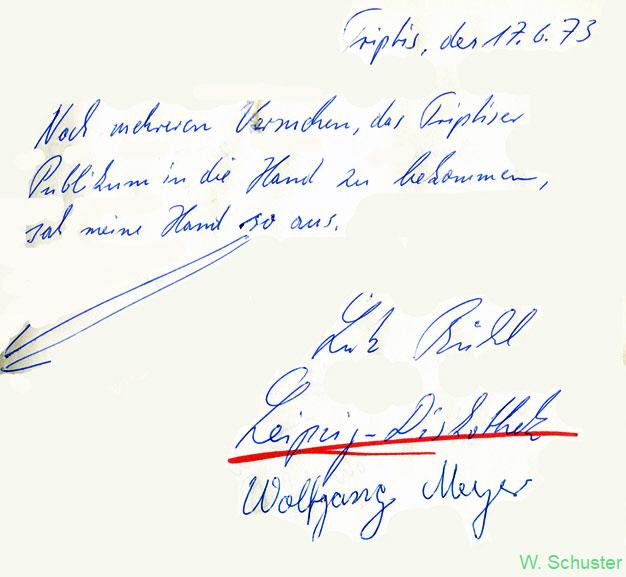 Triptis, den 17.6.73
Nach mehreren Versuchen, das Triptiser
Publikum in die Hand zu bekommen,
sah meine Hand so aus.
Lutz Bühl
Leipzig-Diskothek
Wolfgang Meyer
W. Schuster